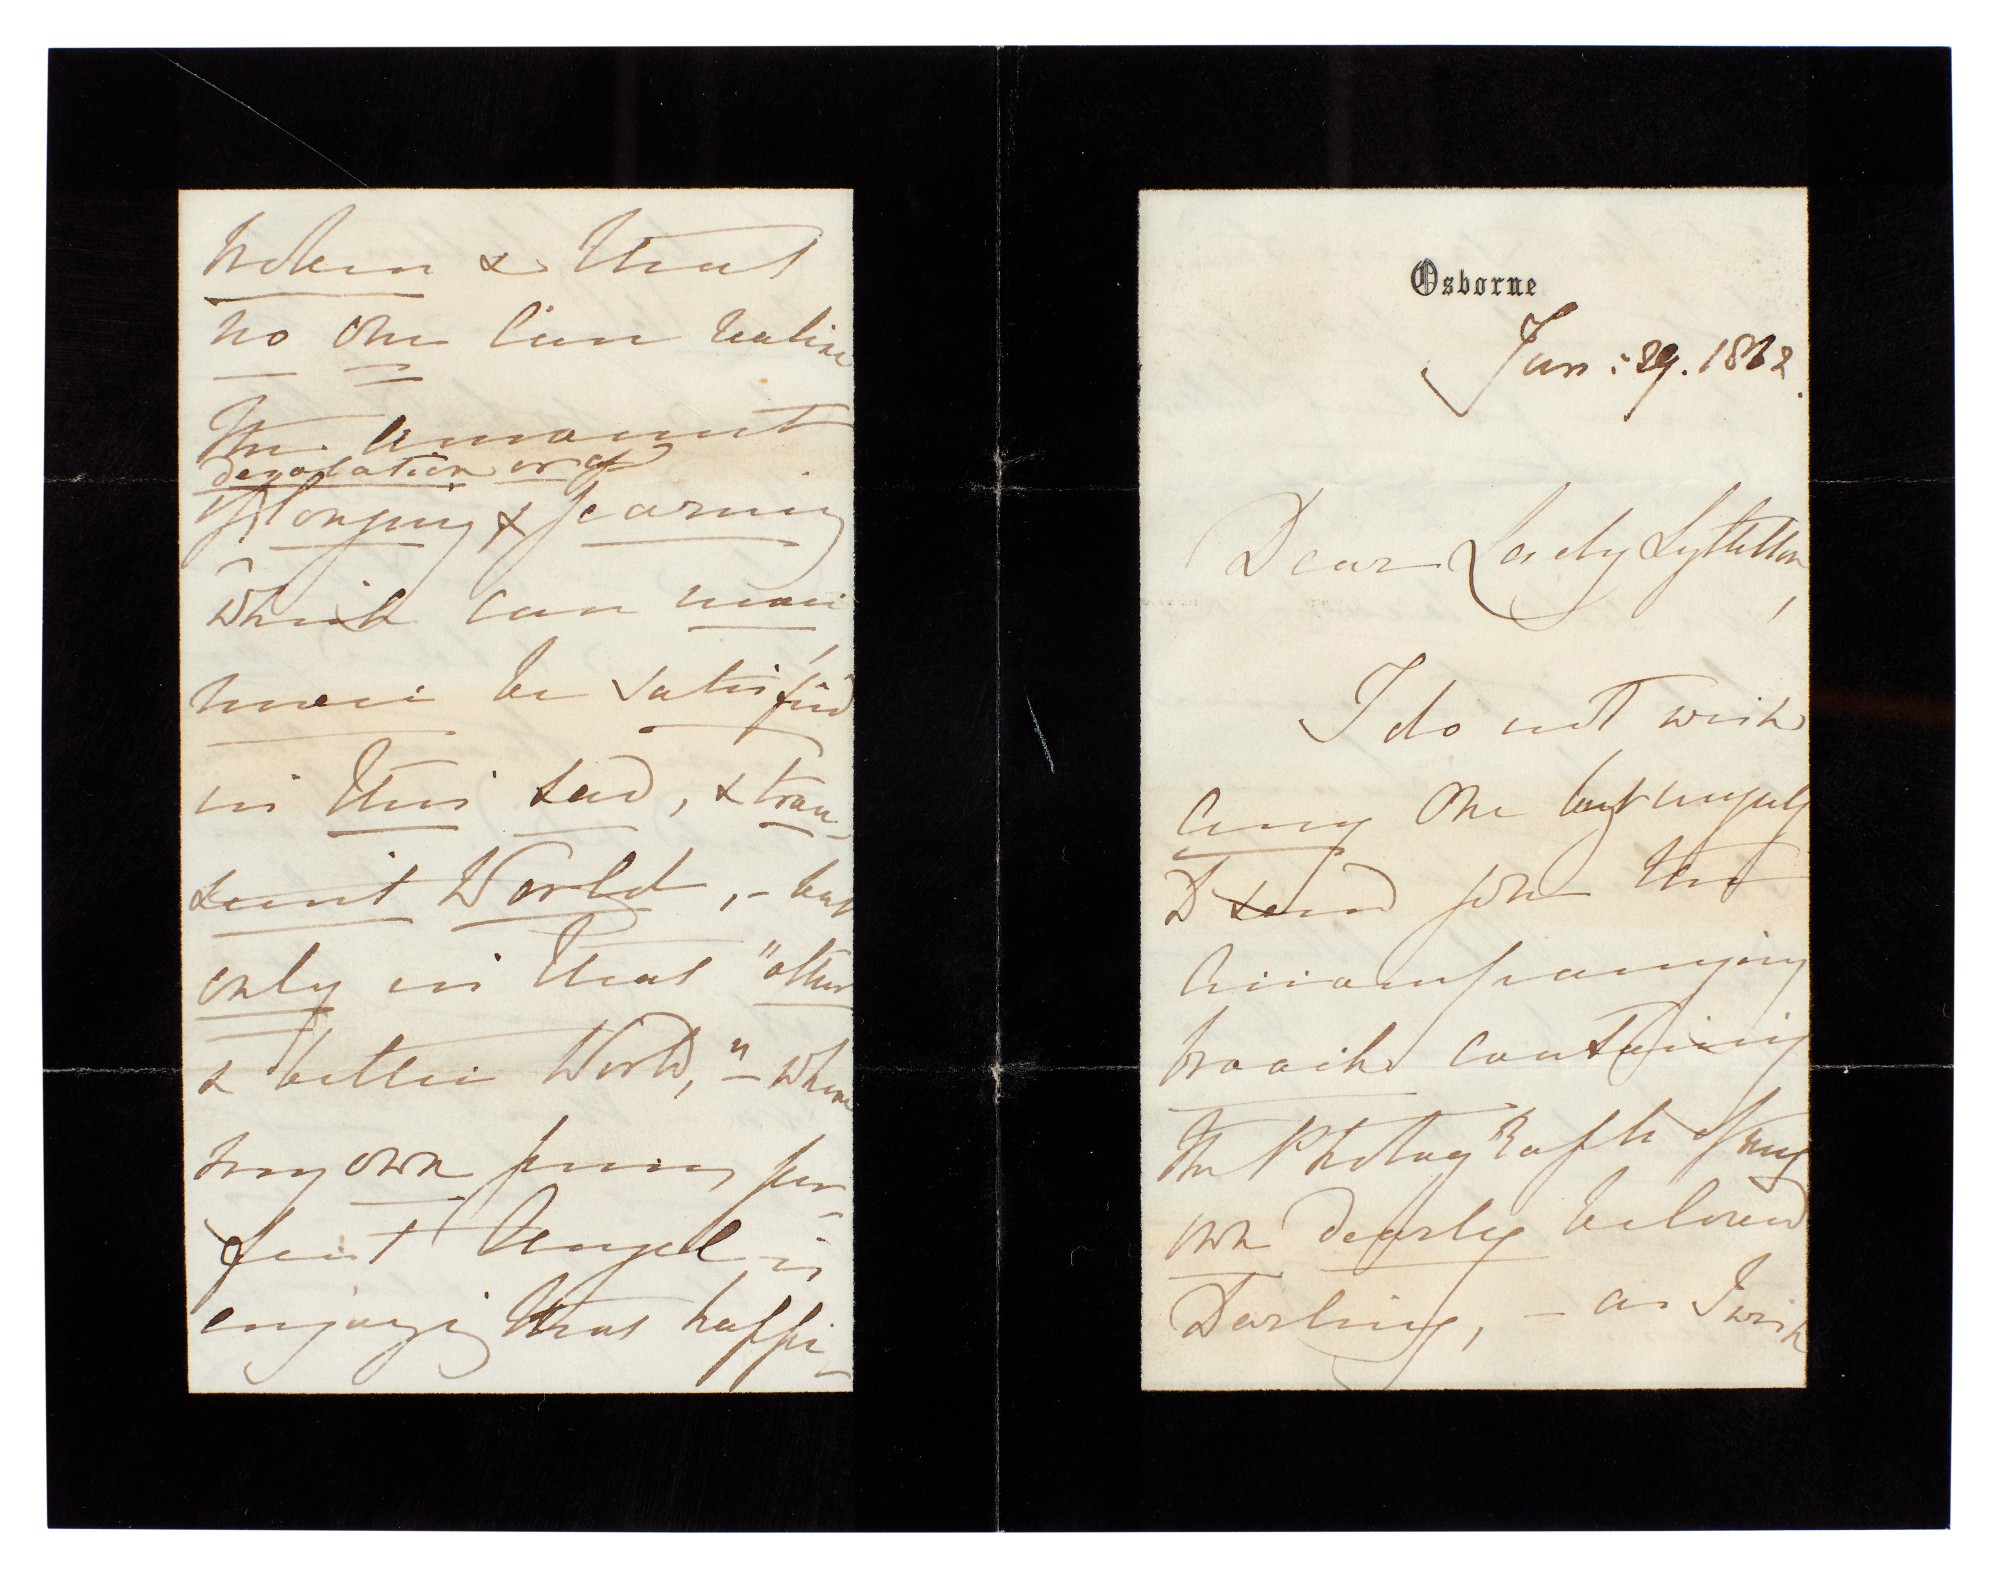 Osborne
Jan: 29. 1862.
Dear Lady Lyttelton,
I do not wish
any one but myself
to send you the
accompanying
brooch containing
the Photograph of my
own dearly beloved
Darling, – as I wish
broken & that
no one can realise
the amount
desolation or of
of longing & yearning
which can never,
never be satisfied
in this sad, & tran-
scient World, – but
only in that "other
& better World," – where
my own pure, per-
fect Angel is
enjoying that happi-